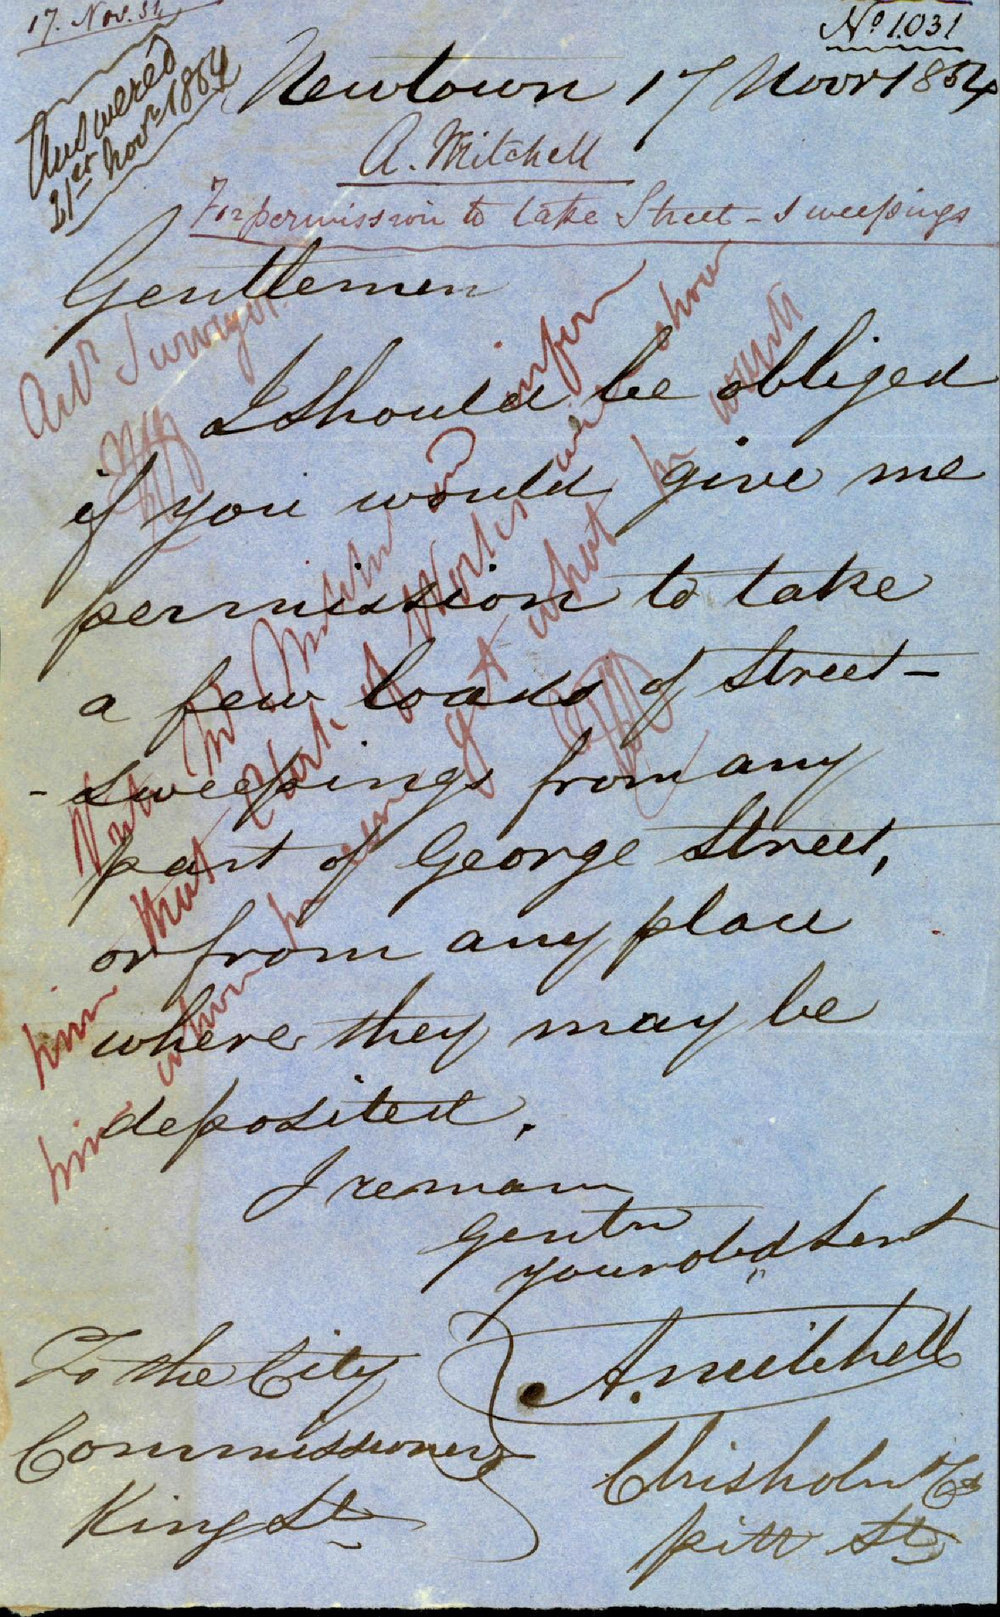 17. Nov. 54
No 1.031
Answered
21st Novr 1854
Newtown 17 Novr 1854
A. Mitchell
For permission to take Street-Sweepings
Gentlemen
I Should be obliged
if you would give me
permission to take
a few loads of Street-
-Sweepings from any
part of George Street,
or from any place
where they may be
deposited.
I remain
Gentn
your obd Servt
A. Mitchell
To the City
Commissioners
King St
Chisholm & Co
pitt St
Actg Surveyor
Write Mr Mitchell inform
him that Clerk of Works will show
him where he may get what he wants